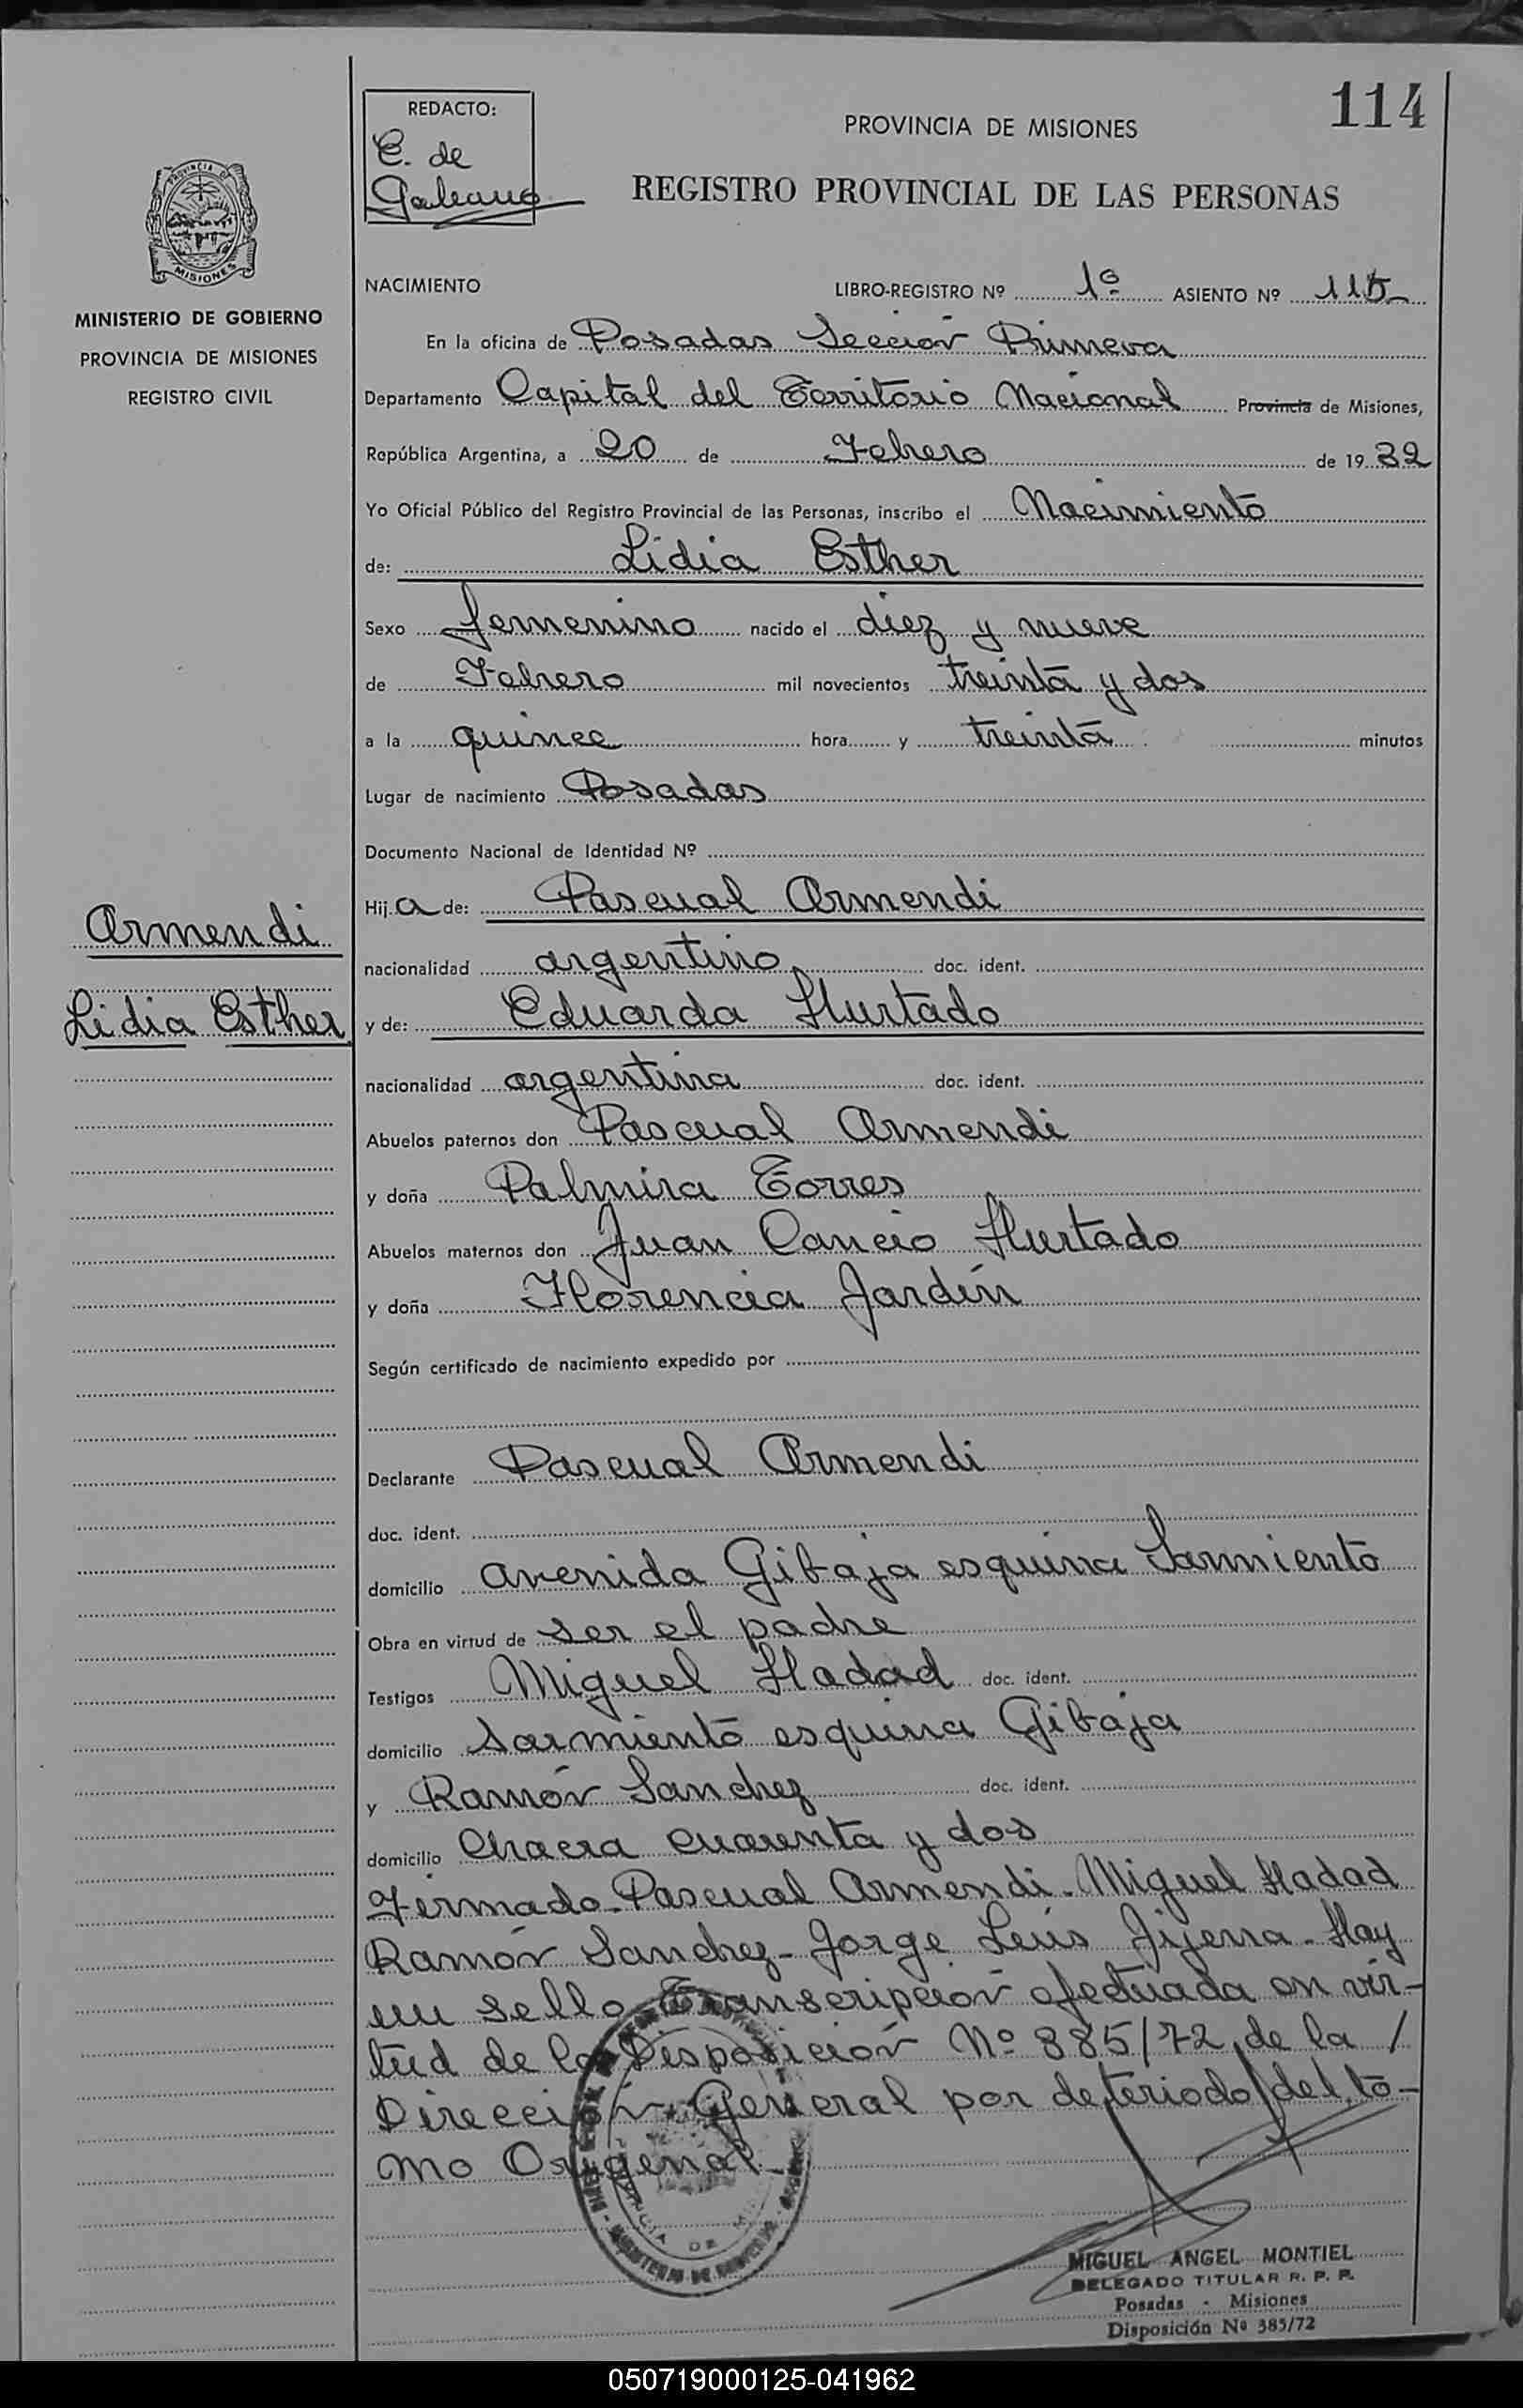 114
REDACTO:
C. de
Galeano
PROVINCIA DE MISIONES
REGISTRO PROVINCIAL DE LAS PERSONAS
PROVINCIA DE
MISIONES
MINISTERIO DE GOBIERNO
PROVINCIA DE MISIONES
REGISTRO CIVIL
NACIMIENTO LIBRO-REGISTRO Nº 1º ASIENTO Nº 115
En la oficina de Posadas Sección Primera
Departamento Capital del Territorio Nacional Provincia de Misiones,
República Argentina, a 20 de Febrero de 19 32
Yo Oficial Público del Registro Provincial de las Personas, inscribo el Nacimiento
de: Lidia Esther
Sexo femenino nacido el diez y nueve
de Febrero mil novecientos treinta y dos
a la quince hora y treinta minutos
Lugar de nacimiento Posadas
Documento Nacional de Identidad Nº
Hij a de: Pascual Armendi
Armendi
nacionalidad argentino doc. ident.
Lidia Esther
y de: Eduarda Hurtado
nacionalidad argentina doc. ident.
Abuelos paternos don Pascual Armendi
y doña Palmira Torres
Abuelos maternos don Juan Cancio Hurtado
y doña Florencia Jardín
Según certificado de nacimiento expedido por
Declarante Pascual Armendi
doc. ident.
domicilio avenida Gibaja esquina Sarmiento
Obra en virtud de ser el padre
Testigos Miguel Hadad doc. ident.
domicilio Sarmiento esquina Gibaja
y Ramón Sanchez doc. ident.
domicilio Chacra cuarenta y dos
Firmado. Pascual Armendi. Miguel Hadad
Ramón Sanchez - Jorge Luis Jijena - Hay
un sello. Transcripción efectuada en vir-
tud de la Disposición Nº 885/72 de la /
Dirección General por deteriodo del to-
mo Original -
MIGUEL ANGEL MONTIEL
DELEGADO TITULAR R. P. P.
Posadas - Misiones
Disposición Nº 385/72
050719000125-041962